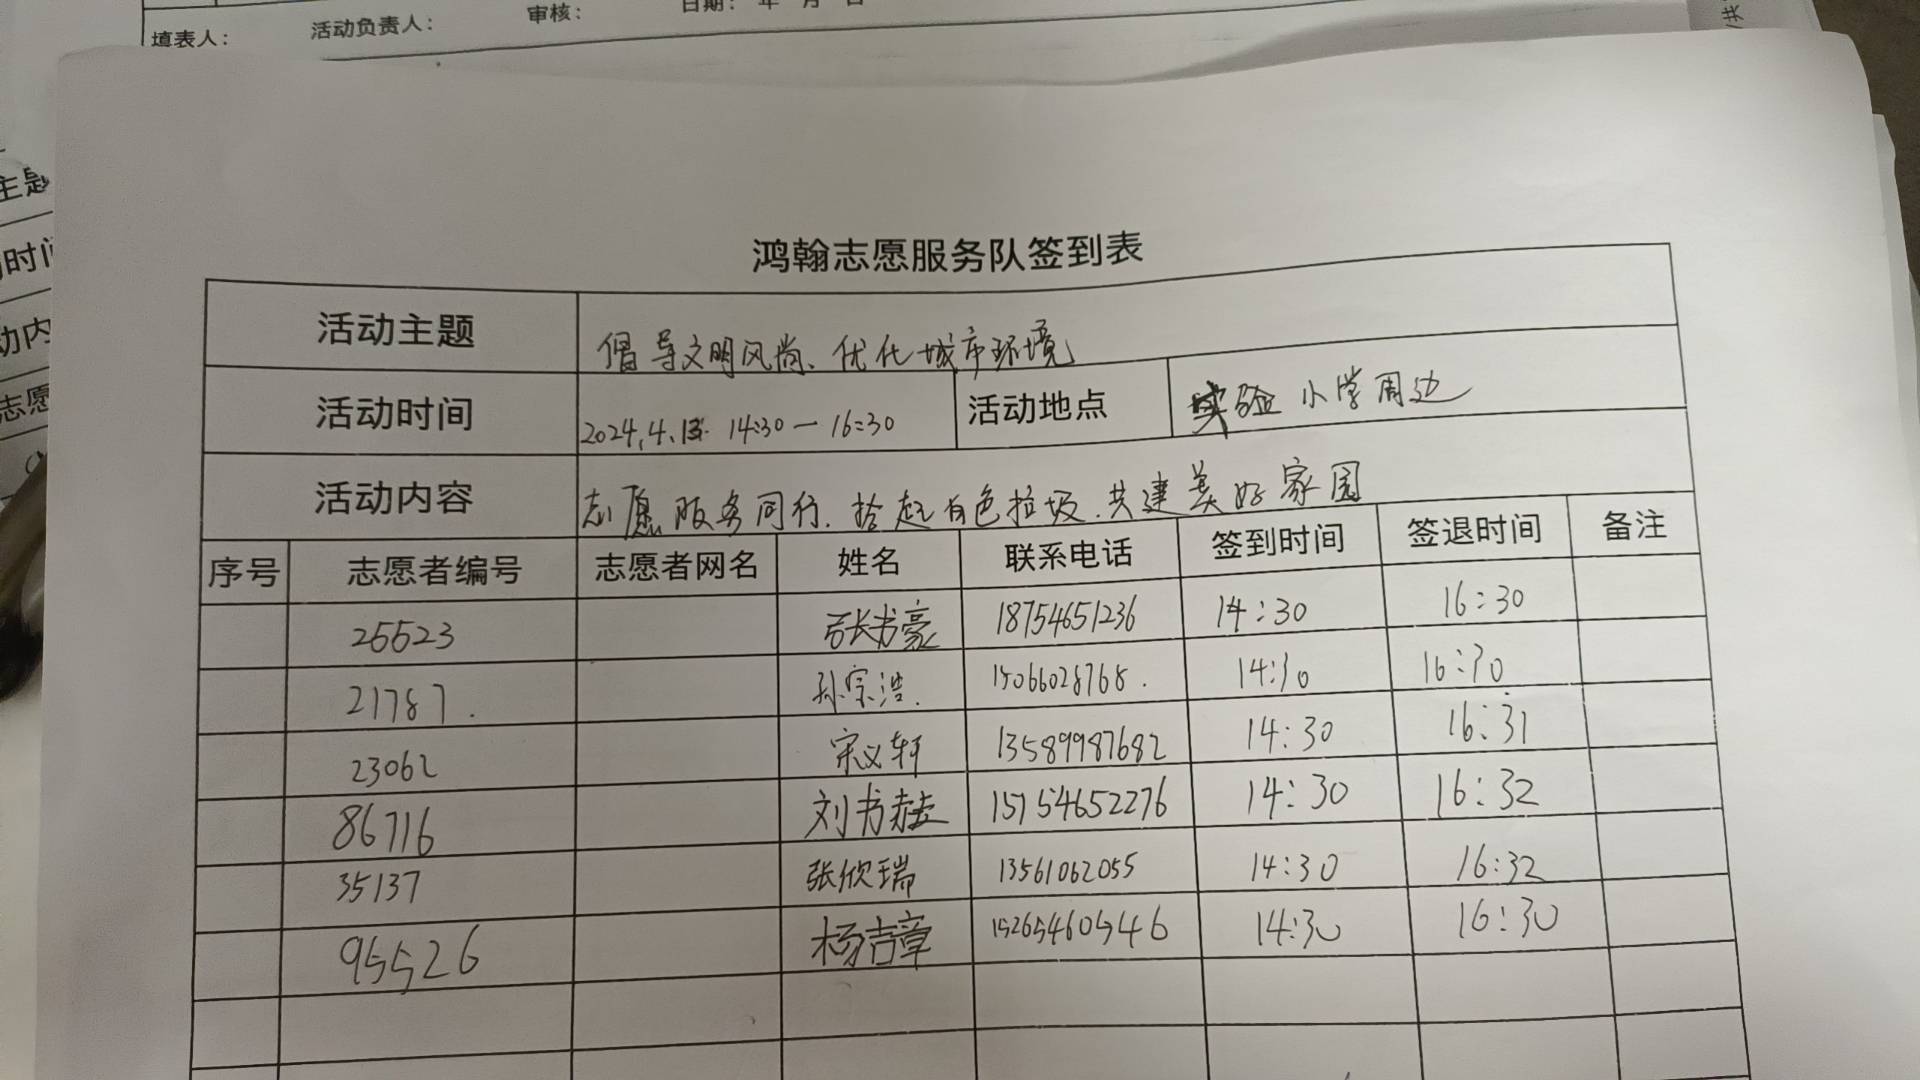 填表人： 活动负责人： 审核： 日期： 年 月 日
主题
时间
动内
志愿
鸿翰志愿服务队签到表
活动主题 倡导文明风尚、优化城市环境
活动时间 2024.4.13. 14:30—16:30 活动地点 实验小学周边
活动内容 志愿服务同行.拾起有色垃圾.共建美好家园
序号 志愿者编号 志愿者网名 姓名 联系电话 签到时间 签退时间 备注
25523 张书豪 18754651236 14:30 16:30
21787. 孙宗浩. 15066028768. 14:30 16:30
23062 宋义轩 13589987682 14:30 16:31
86716 刘书赫 15754652276 14:30 16:32
35137 张欣瑞 13561062055 14:30 16:32
95526 杨吉章 15265460546 14:30 16:30